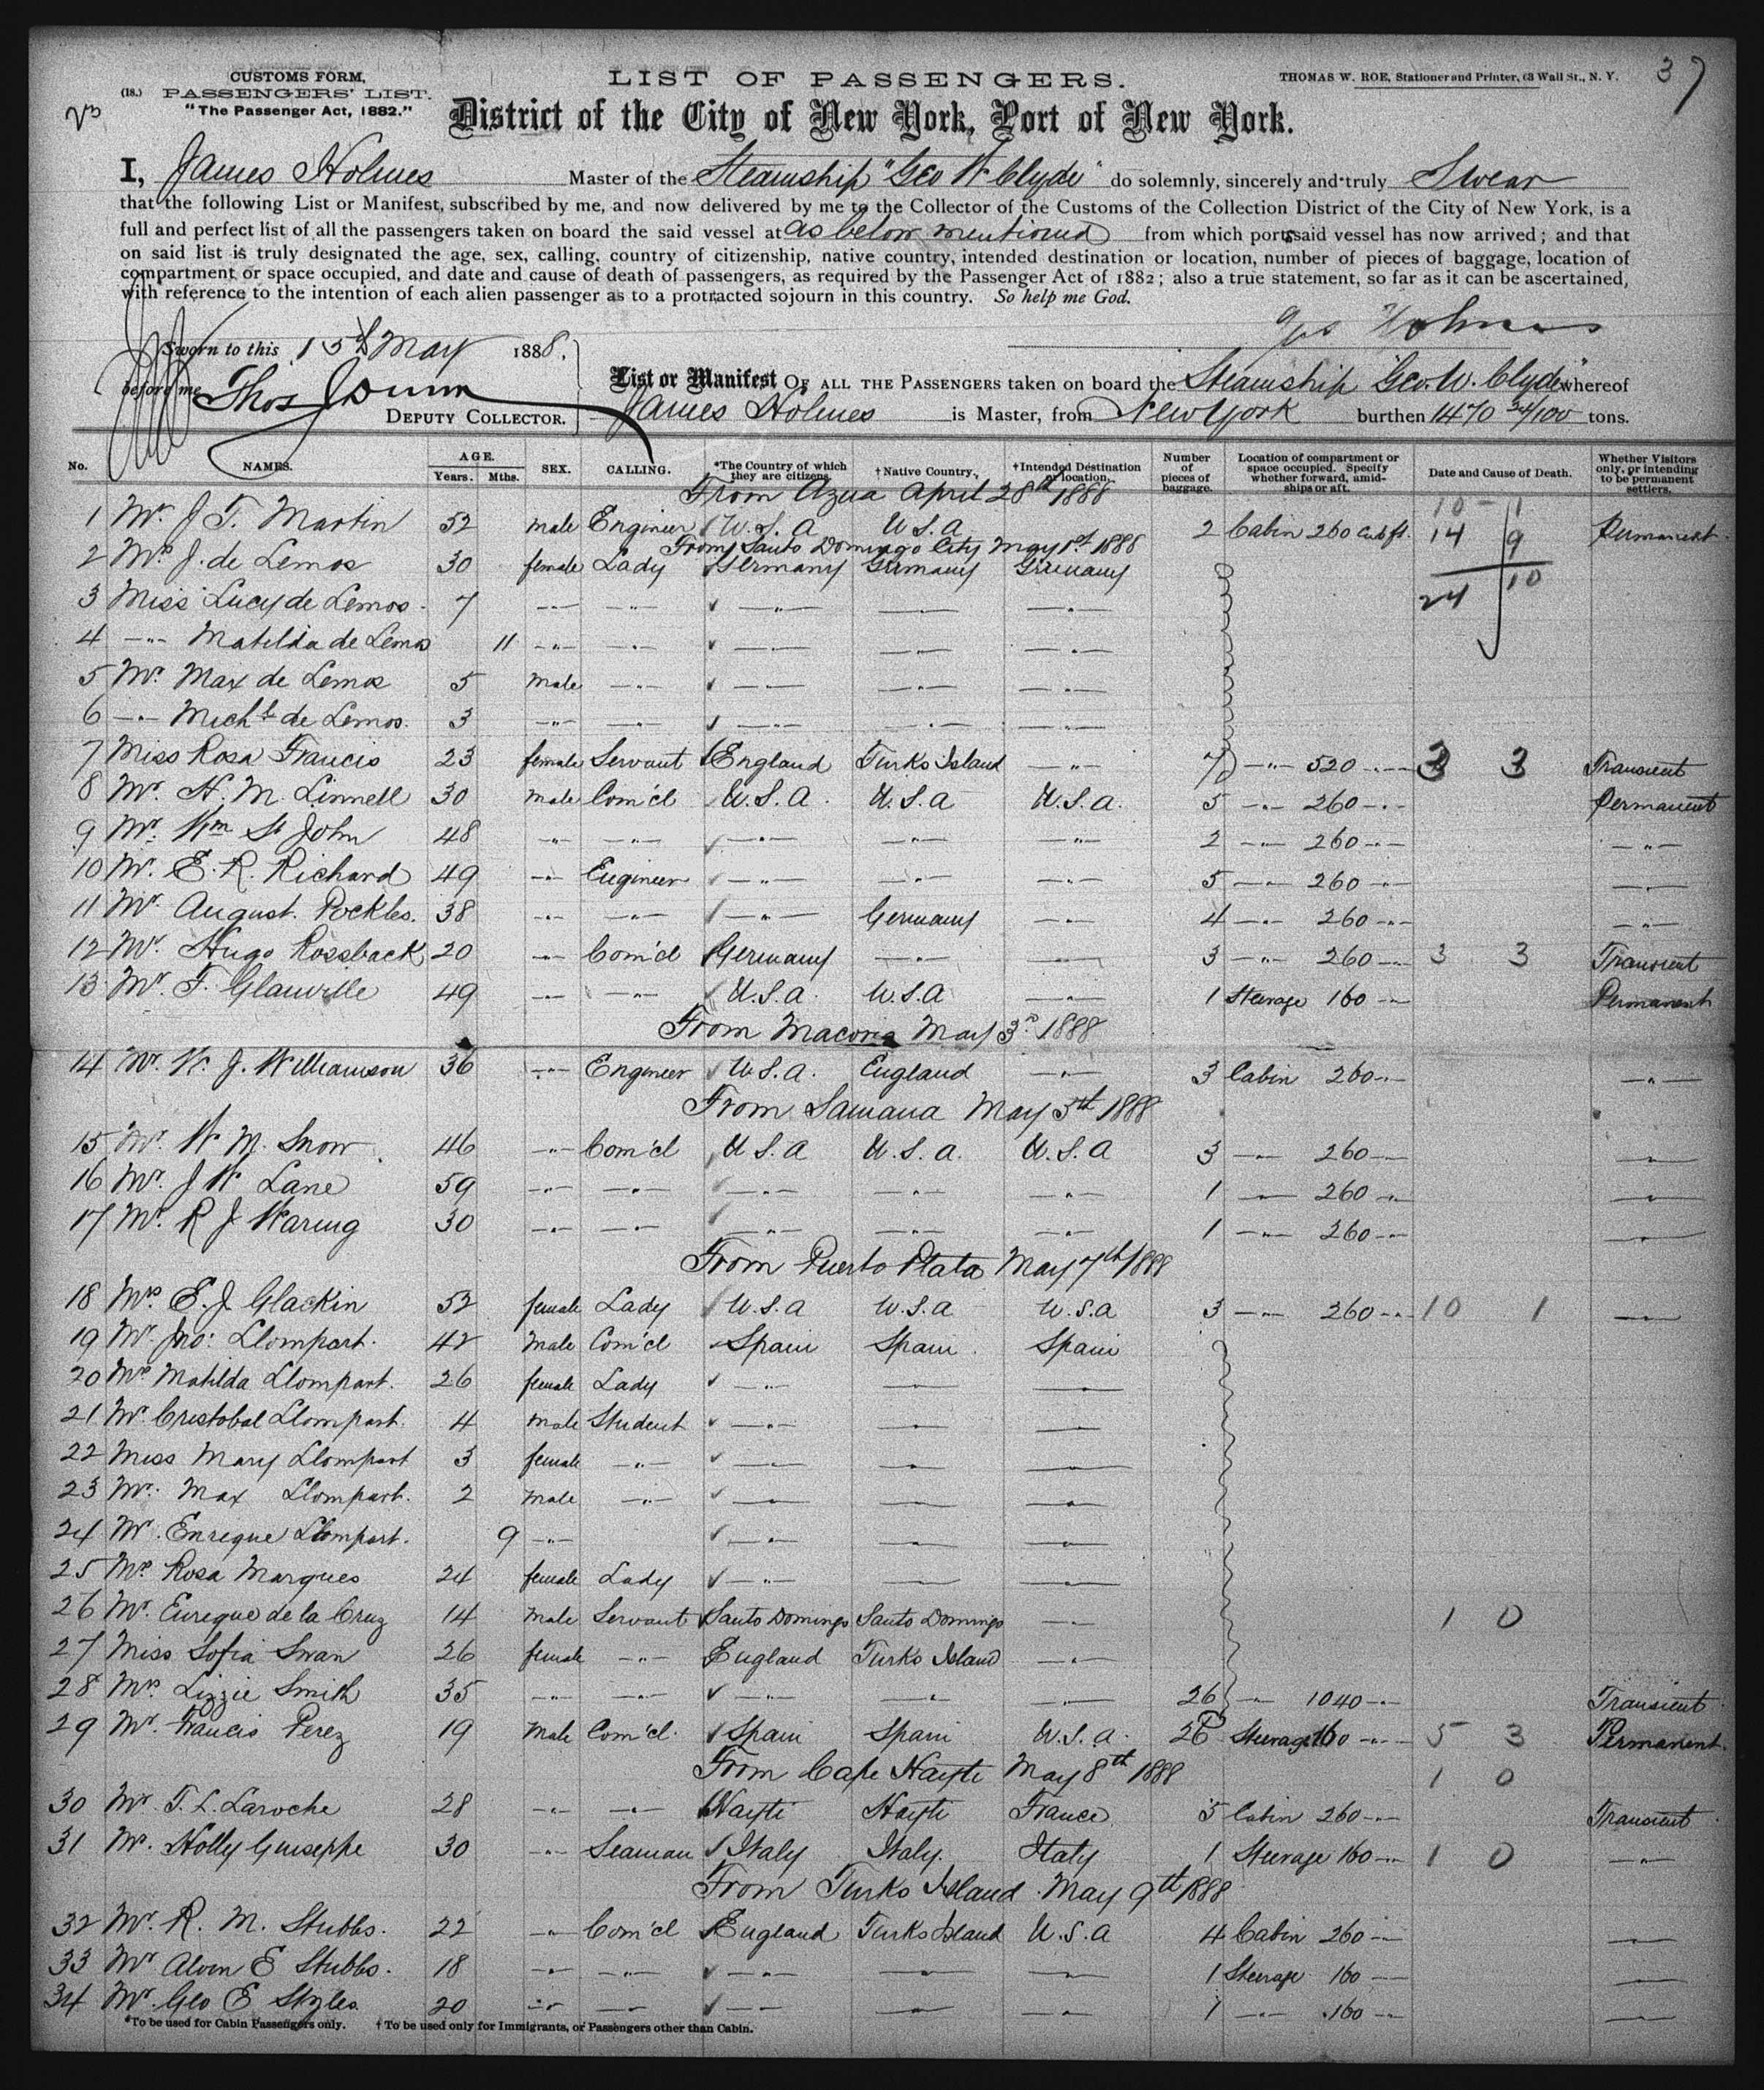 CUSTOMS FORM,
(18.) PASSENGERS' LIST.
"The Passenger Act, 1882."
LIST OF PASSENGERS.
THOMAS W. ROE, Stationer and Printer, 63 Wall St., N. Y.
37
District of the City of New York, Port of New York.
I, James Holmes Master of the Steamship "Geo W Clyde" do solemnly, sincerely and truly Swear
that the following List or Manifest, subscribed by me, and now delivered by me to the Collector of the Customs of the Collection District of the City of New York, is a
full and perfect list of all the passengers taken on board the said vessel at as below mentioned from which ports said vessel has now arrived; and that
on said list is truly designated the age, sex, calling, country of citizenship, native country, intended destination or location, number of pieces of baggage, location of
compartment or space occupied, and date and cause of death of passengers, as required by the Passenger Act of 1882; also a true statement, so far as it can be ascertained,
with reference to the intention of each alien passenger as to a protracted sojourn in this country. So help me God.
Jas Holmes
Sworn to this 15th May 1888.
before me Thos J Dunn
DEPUTY COLLECTOR.
List or Manifest OF ALL THE PASSENGERS taken on board the Steamship "Geo. W. Clyde" whereof
James Holmes is Master, from New York burthen 1470 34/100 tons.
No. NAMES. AGE. Years. Mths. SEX. CALLING. *The Country of which they are citizens. †Native Country. †Intended Destination or location. Number of pieces of baggage. Location of compartment or space occupied. Specify whether forward, amidships or aft. Date and Cause of Death. Whether Visitors only, or intending to be permanent settlers.
From Azua April 28th 1888
10 - 1
1 Mr. J. T. Martin 52 male Engineer U.S.A U.S.A 2 Cabin 260 Cub ft. 14 9 Permanent
From Santo Domingo City May 1st 1888
2 Mrs. J. de Lemos 30 female Lady Germany Germany Germany
24 10
3 Miss Lucy de Lemos 7 —"— —"— —"— —"— —"—
4 —"— Matilda de Lemos 11 —"— —"— —"— —"— —"—
5 Mr. Max de Lemos 5 male —"— —"— —"— —"—
6 —"— Michl de Lemos. 3 —"— —"— —"— —"— —"—
7 Miss Rosa Francis 23 female Servant England Turks Island —"— 7 —"— 520 —"— 3 3 Transient
8 Mr. H. M. Linnell 30 male Com'cl U.S.A. U.S.A U.S.A. 5 —"— 260 —"— Permanent
9 Mr. Wm St John 48 —"— —"— —"— —"— —"— 2 —"— 260 —"— —"—
10 Mr. E. R. Richard 49 —"— Engineer —"— —"— —"— 5 —"— 260 —"— —"—
11 Mr. August. Pockles. 38 —"— —"— —"— Germany —"— 4 —"— 260 —"— —"—
12 Mr. Hugo Rossback 20 —"— Com'cl Germany —"— —"— 3 —"— 260 —"— 3 3 Transient
13 Mr. F. Glanville 49 —"— —"— U.S.A. U.S.A —"— 1 Steerage 160 —"— Permanent
From Macoris May 3rd 1888
14 Mr. W. J. Williamson 36 —"— Engineer U.S.A. England —"— 3 Cabin 260 —"— —"—
From Samana May 5th 1888
15 Mr. W M. Snow 46 —"— Com'cl U.S.A U.S.A. U.S.A 3 —"— 260 —"— —"—
16 Mr. J W Lane 59 —"— —"— —"— —"— —"— 1 —"— 260 —"— —"—
17 Mr. R J Waring 30 —"— —"— —"— —"— —"— 1 —"— 260 —"— —"—
From Puerto Plata May 7th 1888
18 Mrs. E. J. Glackin 52 female Lady U.S.A U.S.A U.S.A 3 —"— 260 —"— 10 1 —"—
19 Mr. Jno: Llompart. 42 male Com'cl Spain Spain Spain
20 Mrs Matilda Llompart. 26 female Lady —"— —"— —"—
21 Mr. Cristobal Llompart. 4 male Student —"— —"— —"—
22 Miss Mary Llompart 3 female —"— —"— —"— —"—
23 Mr. Max Llompart. 2 male —"— —"— —"— —"—
24 Mr. Enrique Llompart. 9 —"— —"— —"— —"—
25 Mrs Rosa Marques 24 female Lady —"— —"— —"—
26 Mr. Enrique de la Cruz 14 male Servant Santo Domingo Santo Domingo —"— 1 0
27 Miss Sofia Swan 26 female —"— England Turks Island —"—
28 Mrs. Lizzie Smith 35 —"— —"— —"— —"— —"— 26 —"— 1040 —"— Transient
29 Mr. Francis Perez 19 male Com'cl. Spain Spain U.S.A. 26 Steerage 160 —"— 5 3 Permanent.
From Cape Hayti May 8th 1888
1 0
30 Mr. T. L. Laroche 28 —"— —"— Hayti Hayti France 5 Cabin 260 —"— Transient
31 Mr. Holly Guiseppe 30 —"— Seaman Italy Italy. Italy 1 Steerage 160 —"— 1 0 —"—
From Turks Island May 9th 1888
32 Mr. R. M. Stubbs. 22 —"— Com'cl England Turks Island U.S.A 4 Cabin 260 —"— —"—
33 Mr Alvin E Stubbs. 18 —"— —"— —"— —"— —"— 1 Steerage 160 —"— —"—
34 Mr. Geo E Styles. 20 —"— —"— —"— —"— —"— 1 —"— 160 —"— —"—
*To be used for Cabin Passengers only. †To be used only for Immigrants, or Passengers other than Cabin.